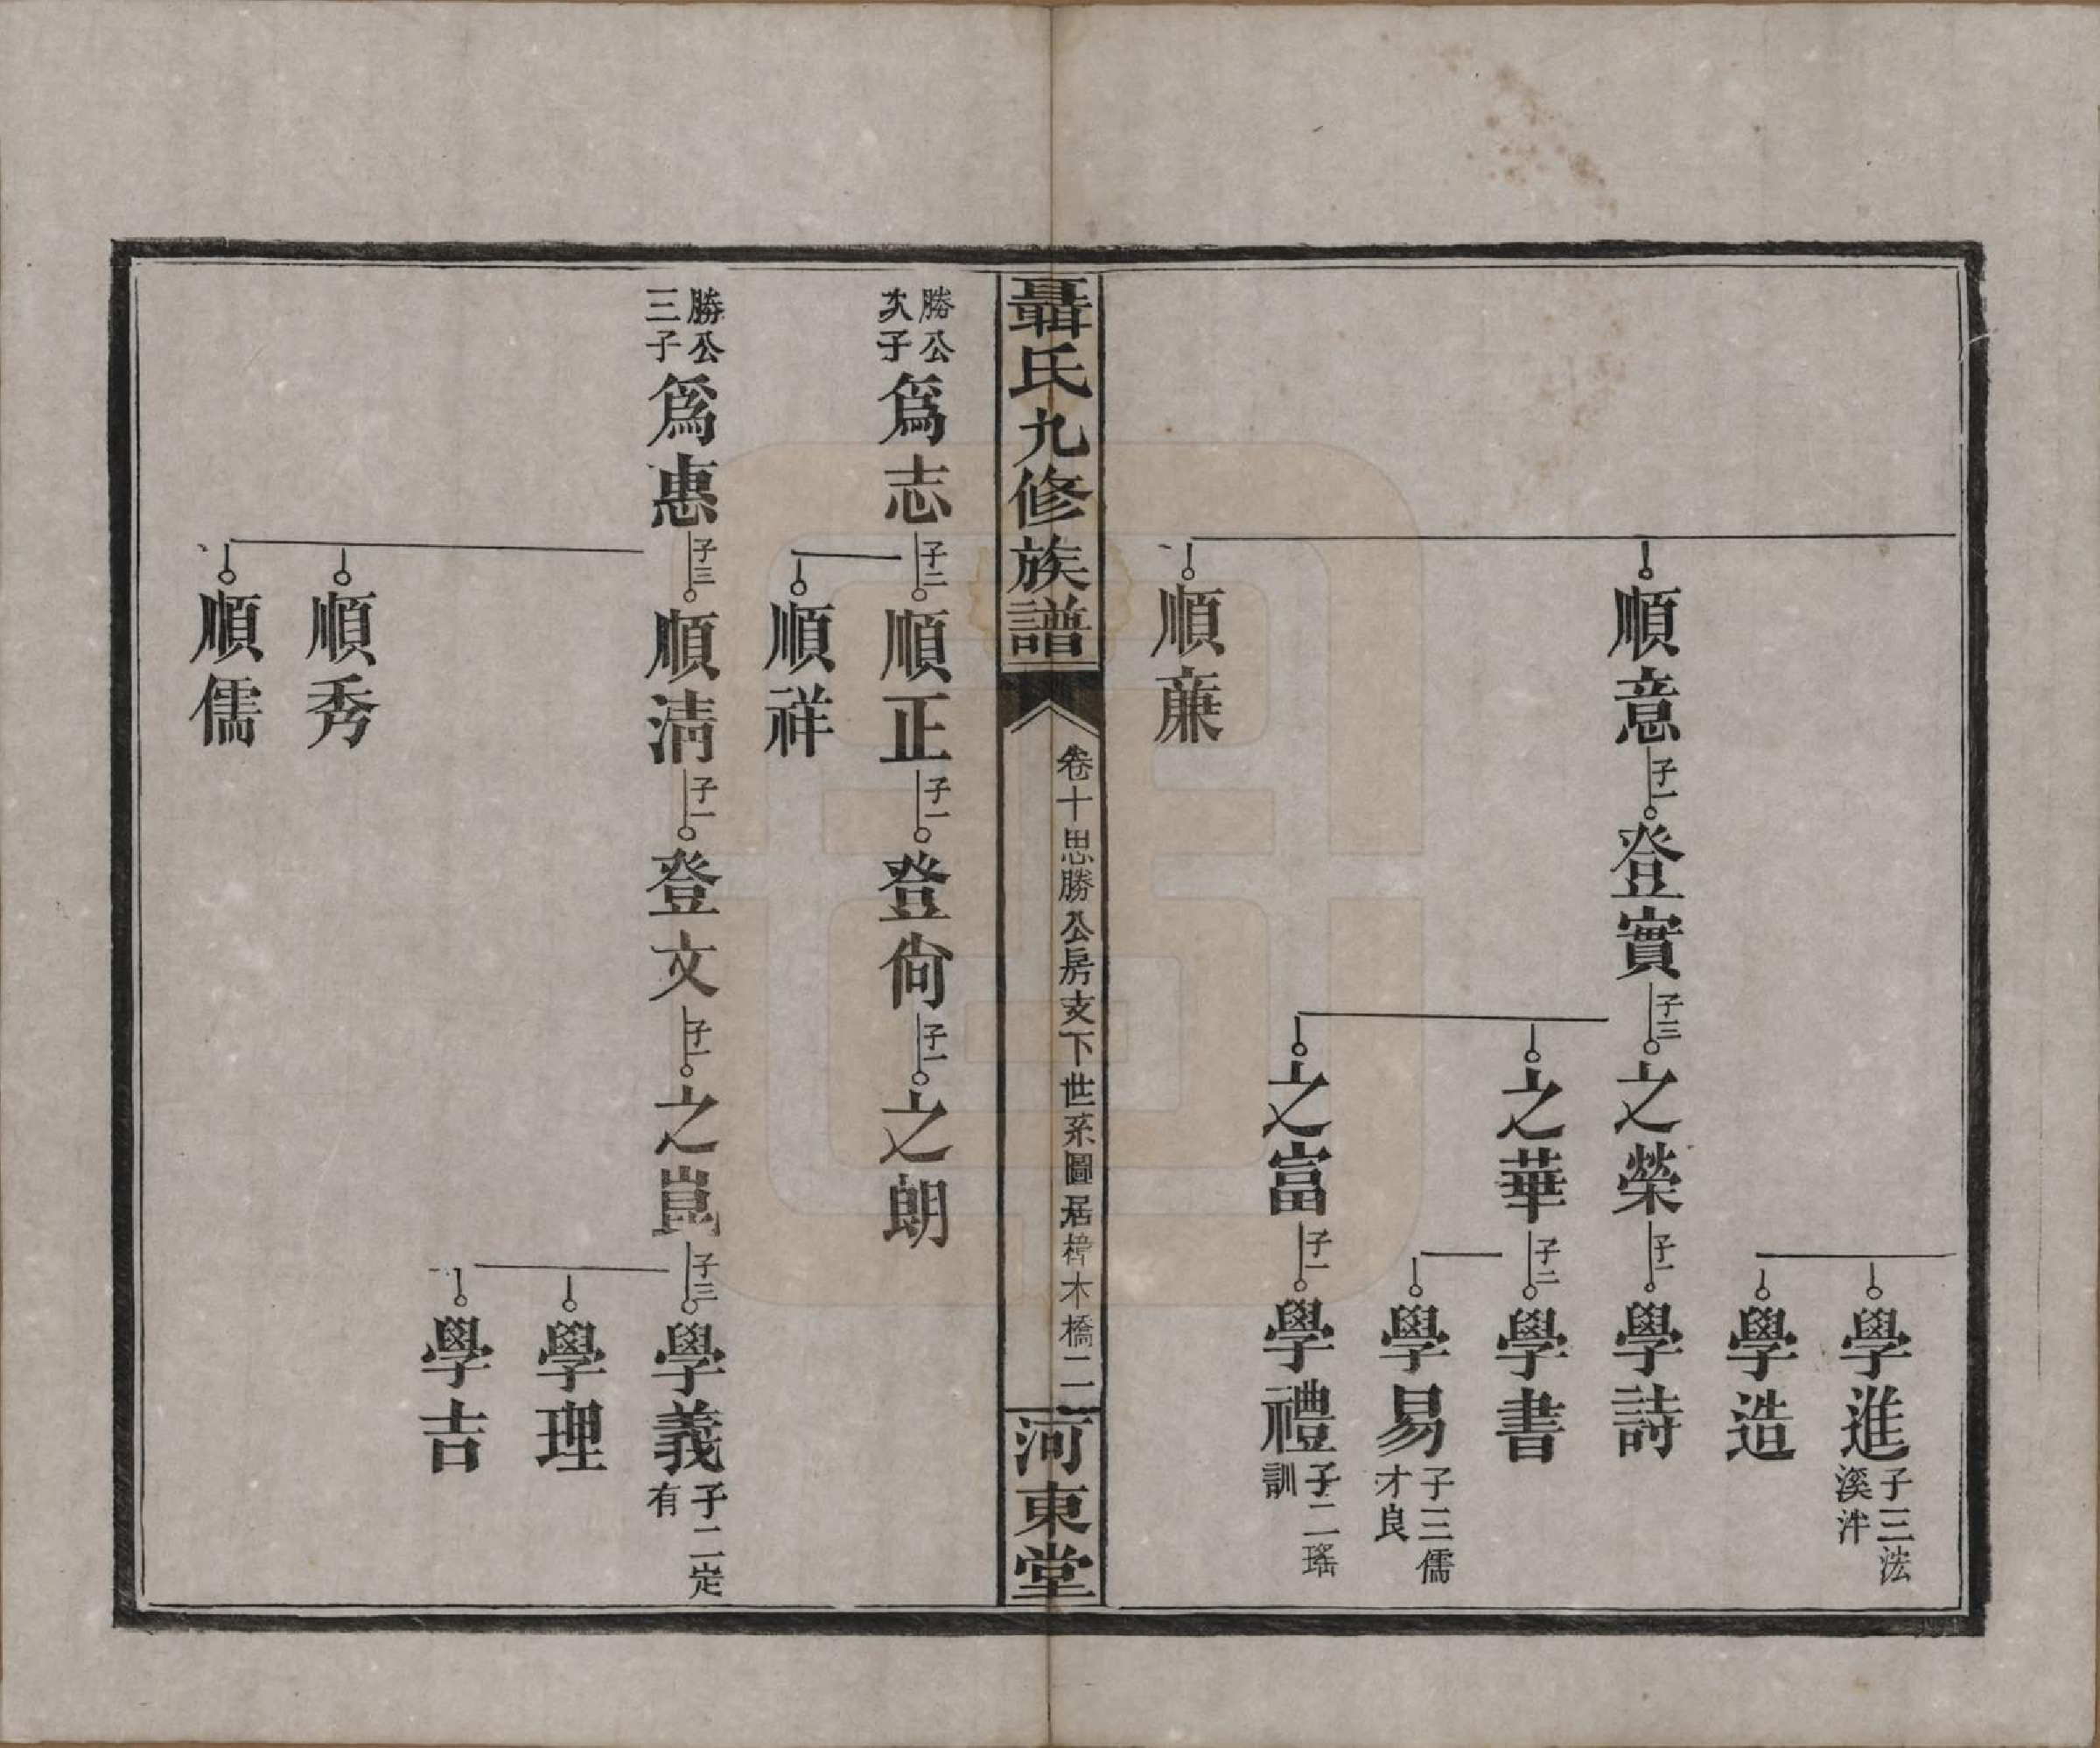 學進子三法溪泮
學造
順意子一登實子三之榮子一學詩
之華子二學書
學易子三儒才良
之富子一學禮子二瑤訓
順亷
聶氏九修族譜
卷十思勝公房支下世系圖居樟木橋二
河東堂
勝公次子爲志子二順正子一登尙子一之朗
順祥
勝公三子爲惠子三順淸子一登文子一之崑子三學義子二定有
學理
學吉
順秀
順儒